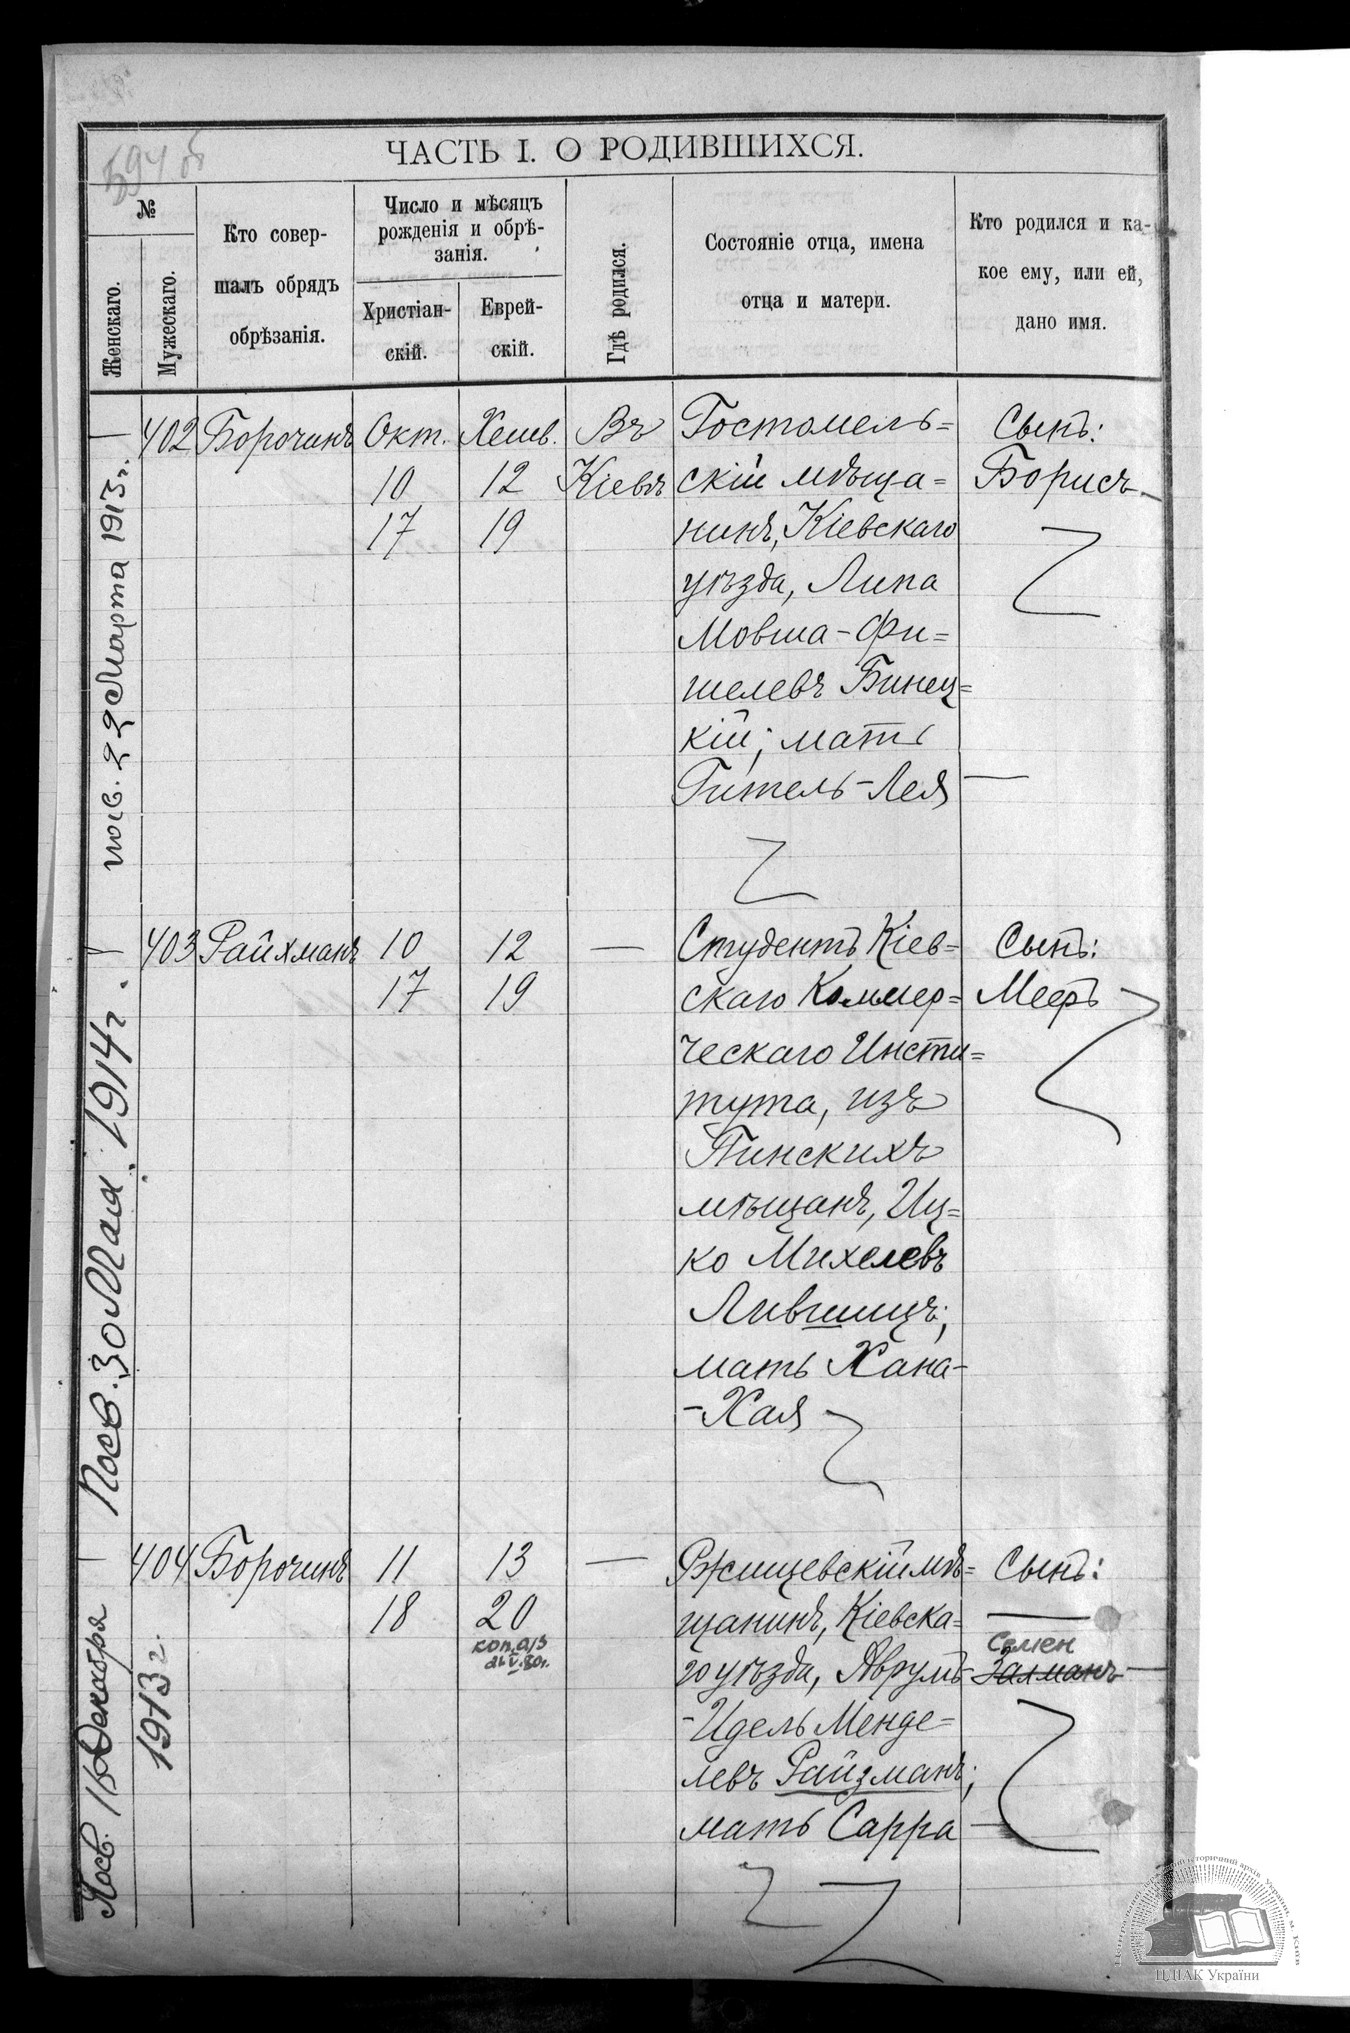 594 об
ЧАСТЬ I. О РОДИВШИХСЯ.
№
Женскаго.
Мужескаго.
Кто совер-
шалъ обрядъ
обрѣзанія.
Число и мѣсяцъ
рожденія и обрѣ-
занія.
Христіан-
скій.
Еврей-
скій.
Гдѣ родился.
Состояніе отца, имена
отца и матери.
Кто родился и ка-
кое ему, или ей,
дано имя.
402
Борочинъ
Окт.
10
17
Хешв.
12
19
Въ
Кіевѣ
Гостомель=
скій мѣща=
нинъ, Кіевскаго
уѣзда, Липа
Мовша-Фи=
шелевъ Бинец=
кій; мать
Гитель-Лея
Сынъ:
Борисъ
посв. 22 Марта 1913 г.
403
Райхманъ
10
17
12
19
Студентъ Кіев=
скаго Коммер=
ческаго Инсти=
тута, изъ
Пинскихъ
мѣщанъ, Иц=
ко Михелевъ
Лившицъ;
мать Хана-
-Хая
Сынъ:
Мееръ
Посв. 30 Мая 1914 г.
404
Борочинъ
11
18
13
20
Ржищевскій мѣ=
щанинъ, Кіевска=
го уѣзда, Аврумъ-
-Идель Менде=
левъ Райзманъ;
мать Сарра
Сынъ:
Семен
Залманъ
Посв. Декабря
1913 г.
ЦДІАК України